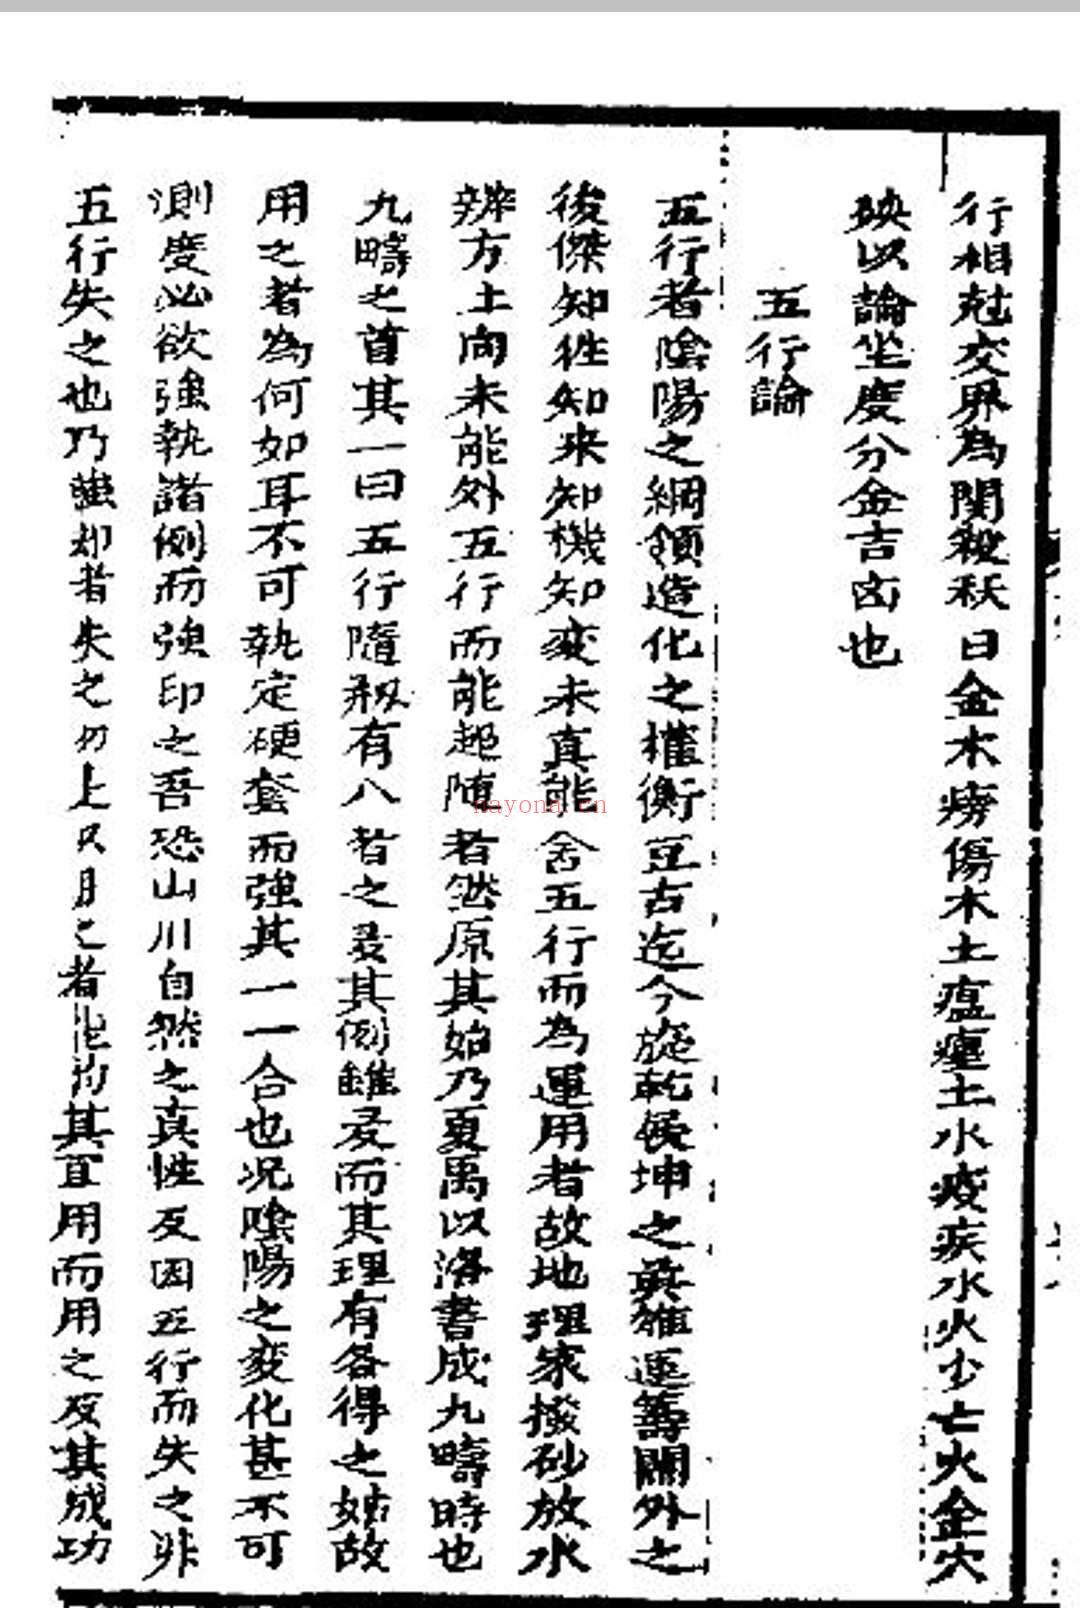 行相尅交界為關殺秋曰金木癆傷木土瘟㾮土水疫疾水火少亡火金穴
映以論坐度分金吉凶也
五行論
五行者陰陽之綱領造化之權衡亘古迄今旋乾儀坤之英雄運籌閫外之
後傑知徃知来知機知变未真能舍五行而為運用者故地理家撥砂放水
辨方土向未能外五行而能趂随者然原其始乃夏禹以洛書成九疇時也
九疇之首其一曰五行隨剏有八者之㫷其例雖㫷而其理有各得之妙故
用之者為何如耳不可執定硬套而強其一一合也况陰陽之変化甚不可
測度必欲強執諸例而強印之吾恐山川自然之真性反因五行而失之非
五行失之也乃者失之上之者其宜用而用之反其成功
nayona.cn